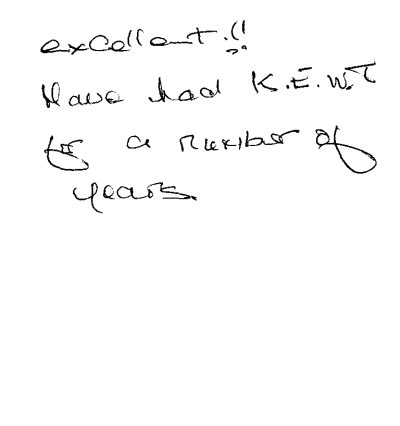 excellent.!!
Have had K.E.W.T
for a number of
years.